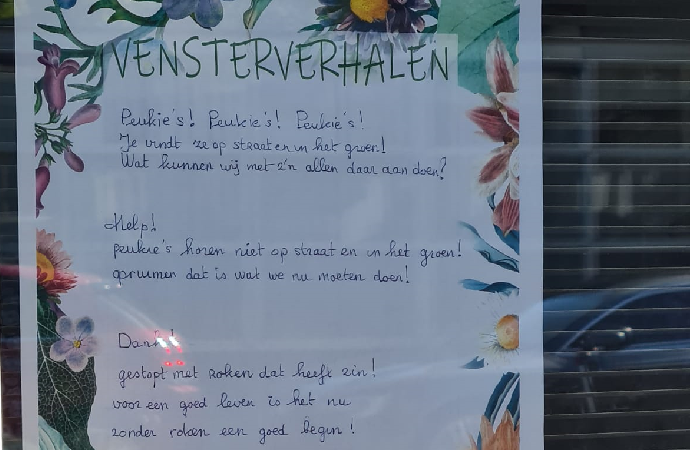 VENSTERVERHALEN
Peukie's! Peukie's! Peukie's!
Je vindt ze op straat en in het groen!
Wat kunnen wij met z'n allen daar aan doen?
Help!
peukie's horen niet op straat en in het groen!
opruimen dat is wat we nu moeten doen!
gestopt met roken dat heeft zin!
voor een goed leven is het nu
zonder roken een goed begin!